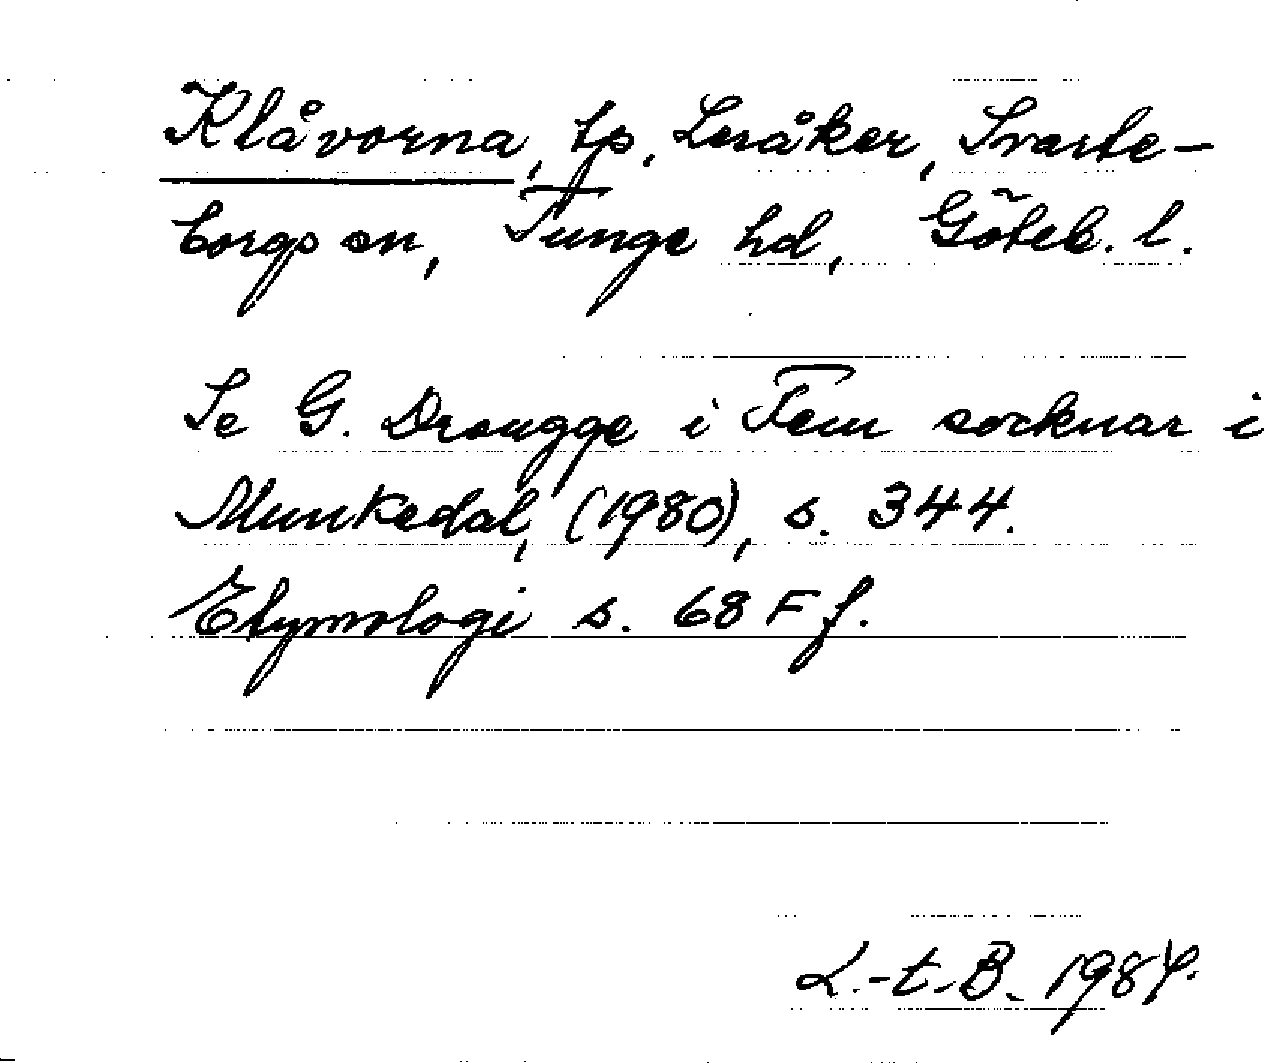 Klåvorna, tp. Leråker, Svarte-
borgs sn, Tunge hd, Göteb. l.
Se G. Drougge i Fem socknar i
Munkedal, (1980), s. 344.
Etymologi s. 68 F f.
L.-t.-B. 1984.